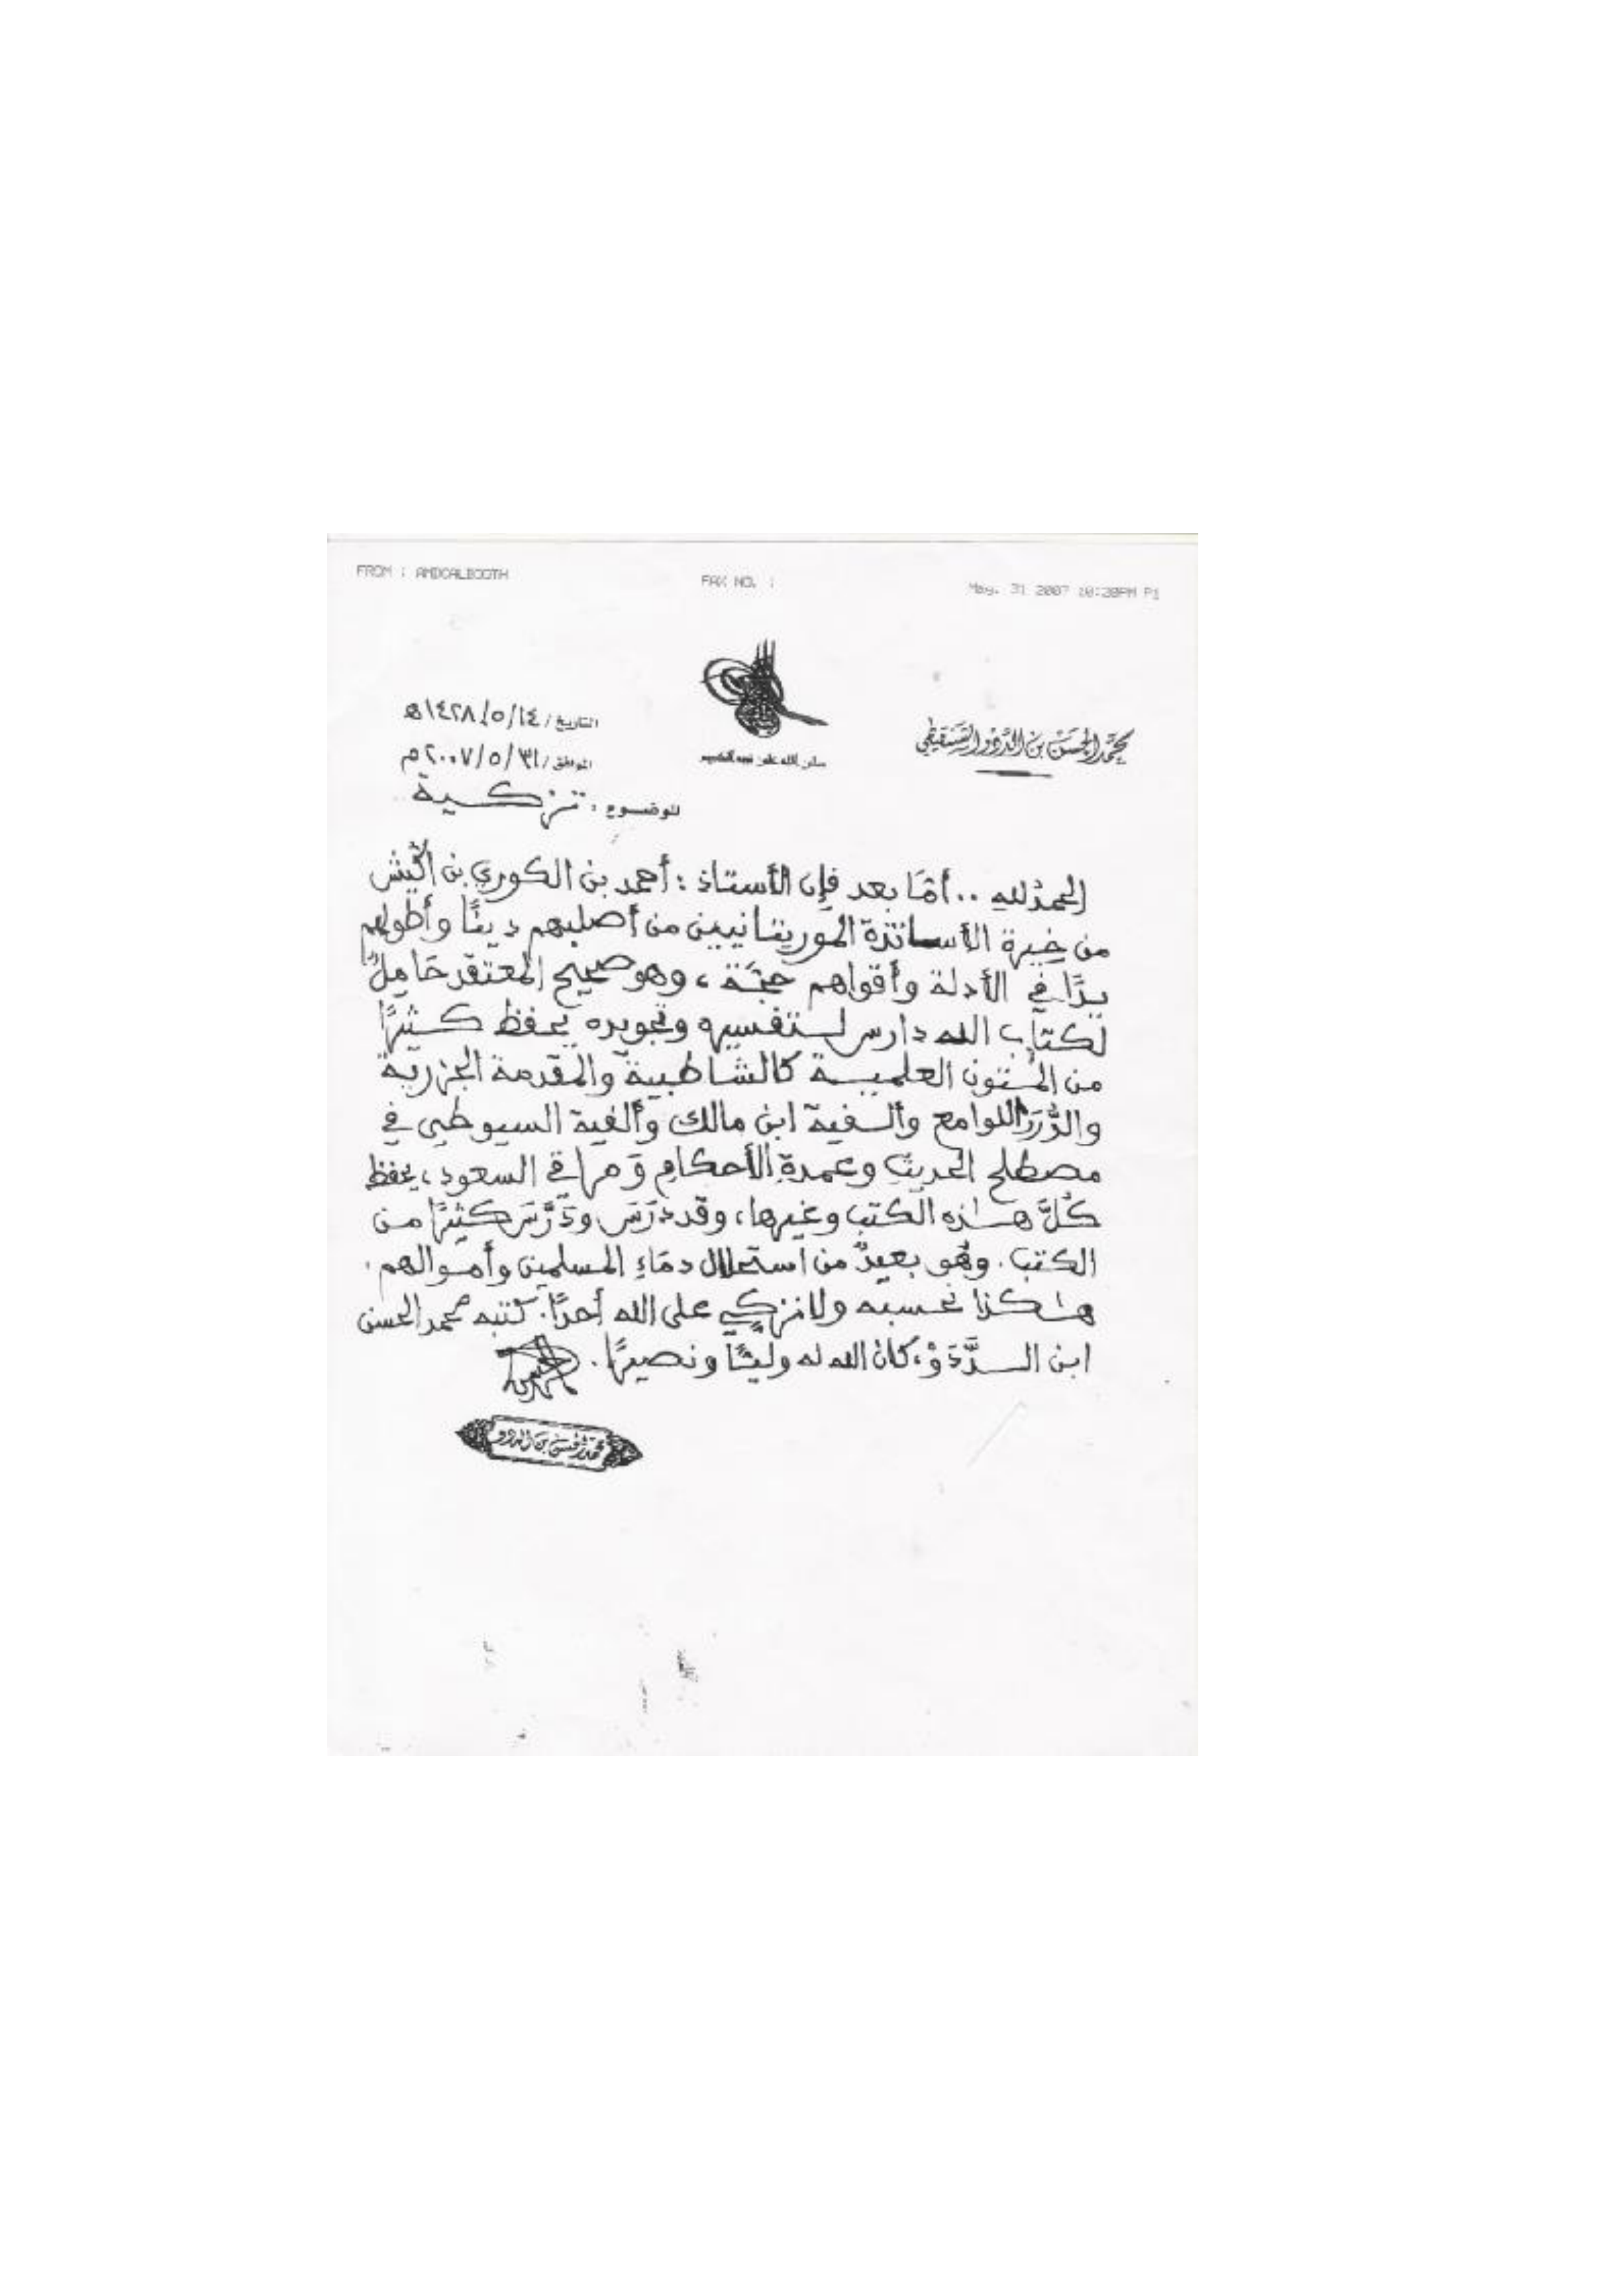 FROM : ANDCALBOOTH FAX NO. : May. 31 2007 10:20PM P1
محمد الحسن بن الددو الشنقيطي
صلى الله على نبيه الكريم
التاريخ / ١٤ / ٥ / ١٤٢٨ هـ
الموافق / ٣١ / ٥ / ٢٠٠٧ م
الموضوع : تزكية
الحمد لله .. أمَّا بعد فإن الأستاذ : أحمد بن الكوري بن
من خِيرة الأساتذة الموريتانيين من أصلبهم دينًا وأطولهم
يدًا في الأدلة وأقواهم حجَّة ، وهو صحيح المعتقد حَامِلٌ
لكتاب الله دارس لتفسيره وتجويده يحفظ كثيرًا
من المتون العلمية كالشاطبية والمقدمة الجزرية
والدُّرَر اللوامع وألفية ابن مالك وألفية السيوطي في
مصطلح الحديث وعمدة الأحكام وَمراقي السعود ، يحفظ
كُلَّ هـٰذه الكتب وغيرها ، وقد دَرَسَ ودَرَّسَ كثيرًا من
الكتب . وهُو بعيدٌ من استحلال دمَاءِ المسلمين وأموالهم .
هـٰكذا نحسبه ولا نزكِّي على الله أحدًا . كتبه محمد الحسن
ابن الدَّدَوْ ، كان الله له وليًّا ونصيرًا .
محمد الحسن بن الددو